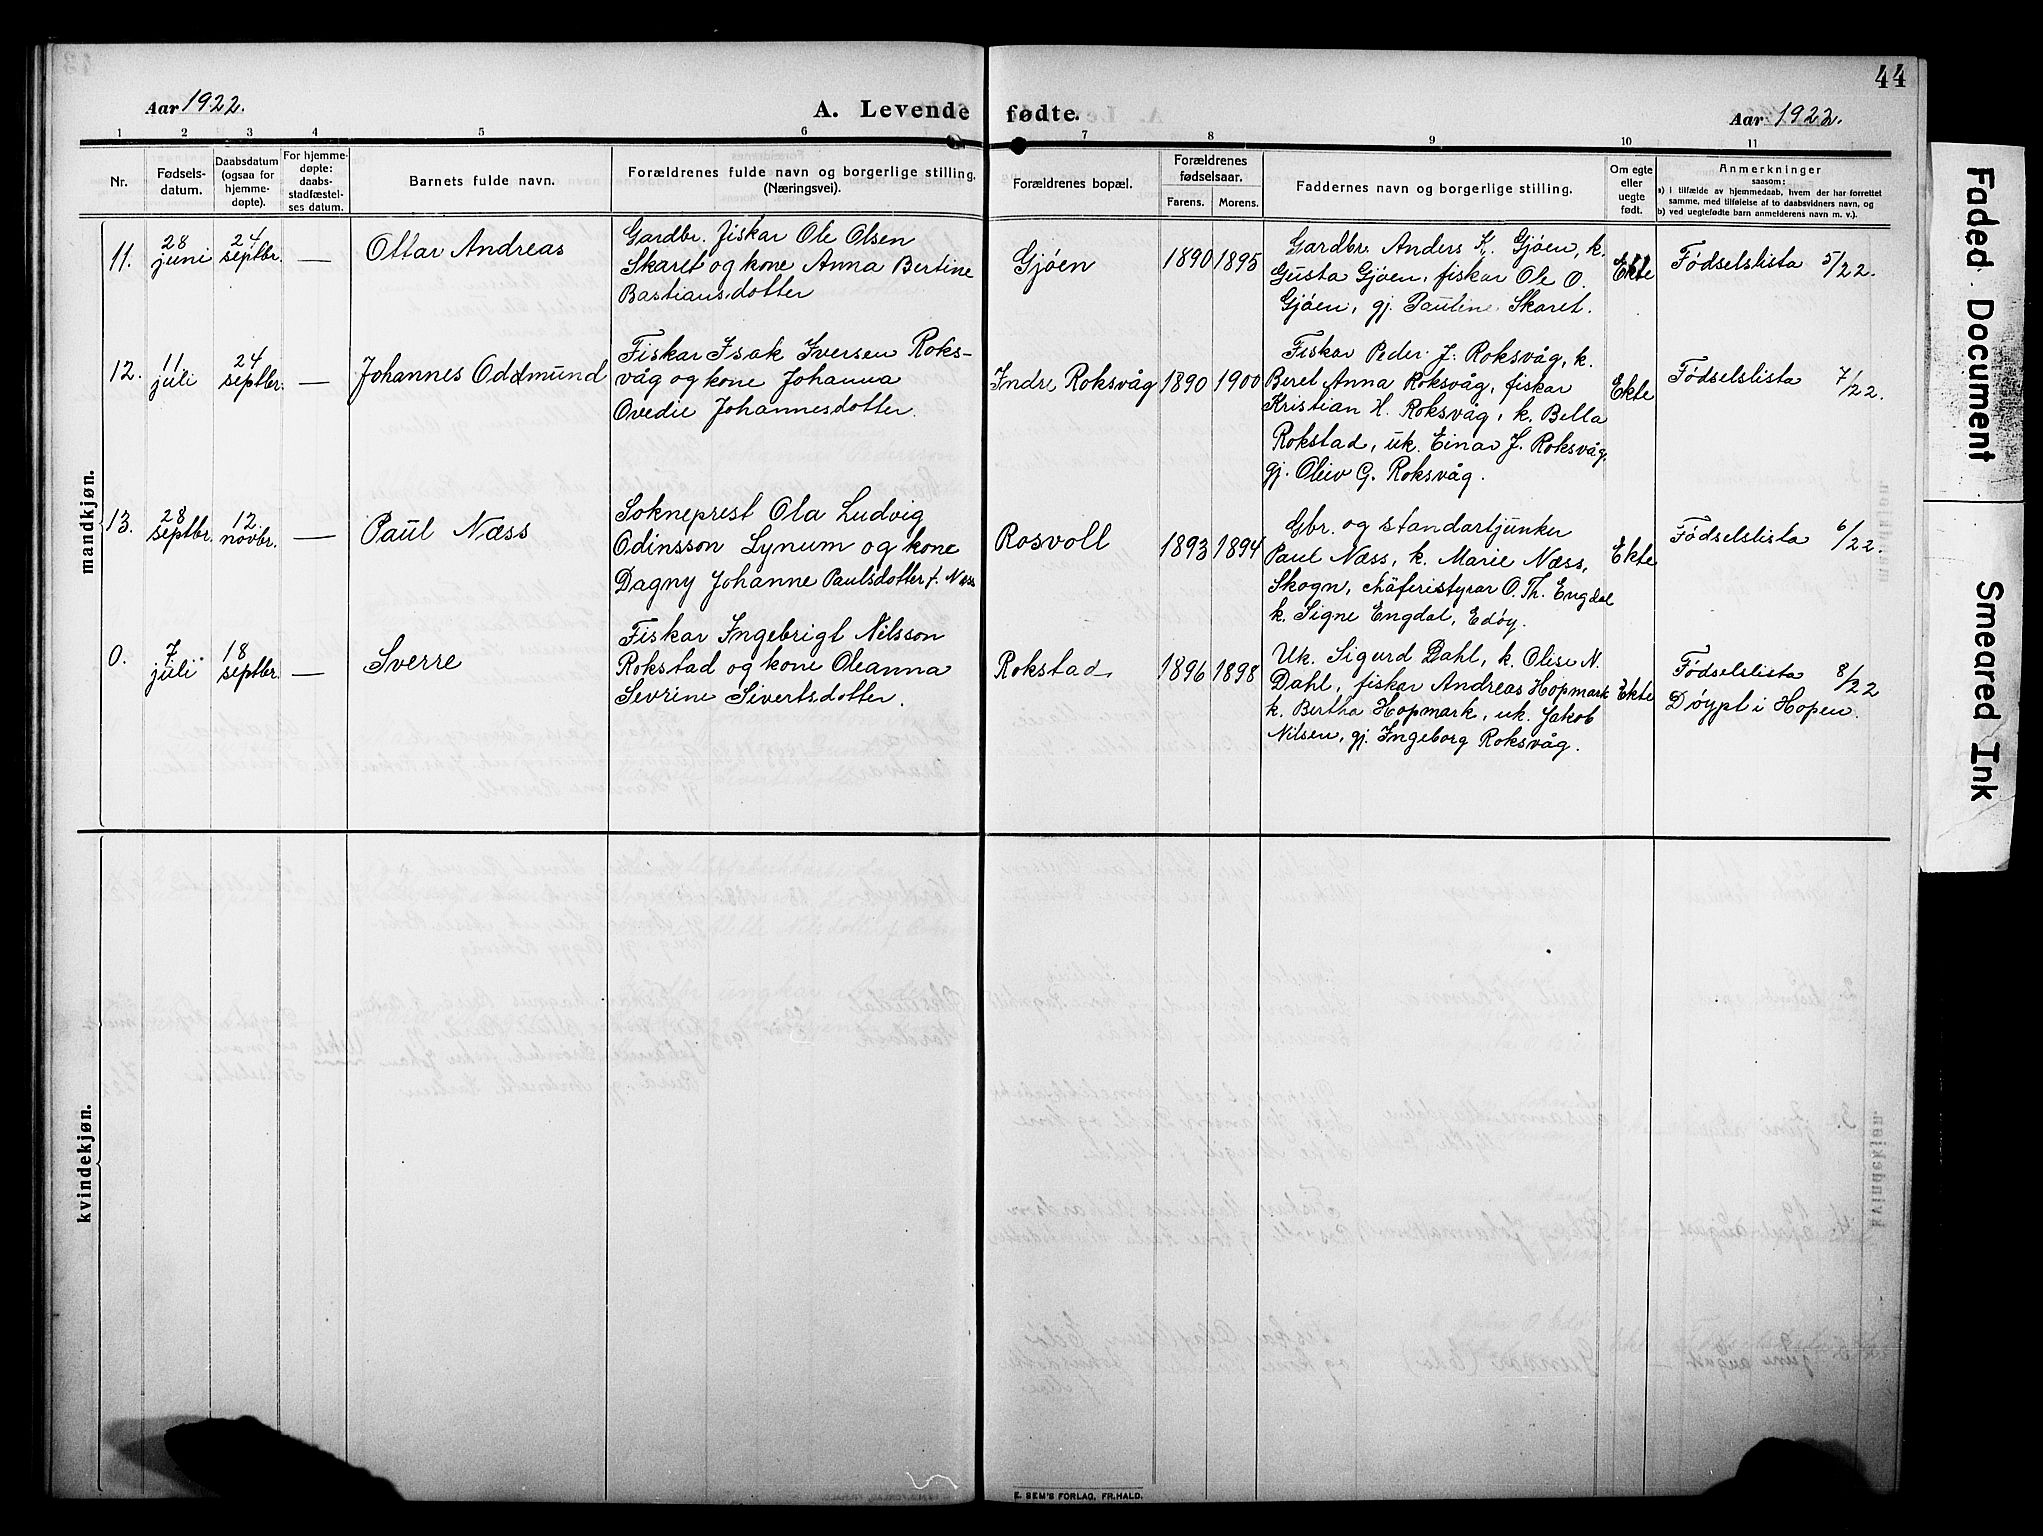 44
Aar 1922.
A. Levende fødte.
Aar 1922.
1 2 3 4 5 6 7 8 9 10 11
Nr.
Fødsels-
datum.
Daabsdatum
(ogsaa for
hjemme-
døpte).
For hjemme-
døpte:
daabs-
stadfæstel-
ses datum.
Barnets fulde navn.
Forældrenes fulde navn og borgerlige stilling.
(Næringsvei).
Forældrenes bopæl.
Forældrenes
fødselsaar.
Farens. Morens.
Faddernes navn og borgerlige stilling.
Om egte
eller
uegte
født.
Anmerkninger
saasom:
a) i tilfælde av hjemmedaab, hvem der har forrettet
samme, med tilføielse af to daabsvidners navn, og
b) ved uegtefødte barn anmelderens navn m. v.).
mandkjøn.
11.
28
juni
24
septbr.
—
Ottar Andreas
Gardbr. fiskar Ole Olsen
Skaret og kone Anna Bertine
Bastiansdotter
Gjøen
1890 1895
Gardbr. Anders K. Gjøen, k.
Gusta Gjøen, fiskar Ole O.
Gjøen, gj. Pauline Skaret.
Ekte
Fødselslista 5/22.
12.
11
juli
24
septbr.
—
Johannes Oddmund
Fiskar Isak Iversen Roks-
våg og kone Johanna
Ovedie Johannesdotter.
Indre Roksvåg
1890 1900
Fiskar Peder J. Roksvåg, k.
Beret Anna Roksvåg, fiskar
Kristian H. Roksvåg, k. Bella
Rokstad, uk. Einar J. Roksvåg,
gj. Oleiv G. Roksvåg.
Ekte
Fødselslista 7/22.
13.
28
septbr.
12
novbr.
—
Paul Næss
Sokneprest Ola Ludvig
Odinsson Lynum og kone
Dagny Johanne Paulsdotter f. Næss
Rosvoll
1893 1894
Gbr. og standartjunker
Paul Næss, k. Marie Næss,
Skogn, chäferistyrar O. Th. Engdal
k. Signe Engdal, Edøy.
Ekte
Fødselslista 6/22.
0.
7
juli
18
septbr.
—
Sverre
Fiskar Ingebrigt Nilsson
Rokstad og kone Oleanna
Sevrine Sivertsdotter.
Rokstad
1896 1898
Uk. Sigurd Dahl, k. Olise N.
Dahl, fiskar Andreas Hopmark
k. Bertha Hopmark, uk. Jakob
Nilsen, gj. Ingeborg Roksvåg.
Ekte
Fødselslista 8/22
Døypt i Hopen.
kvindekjøn.
E. SEM'S FORLAG, FR.HALD.
Faded Document
Smeared Ink